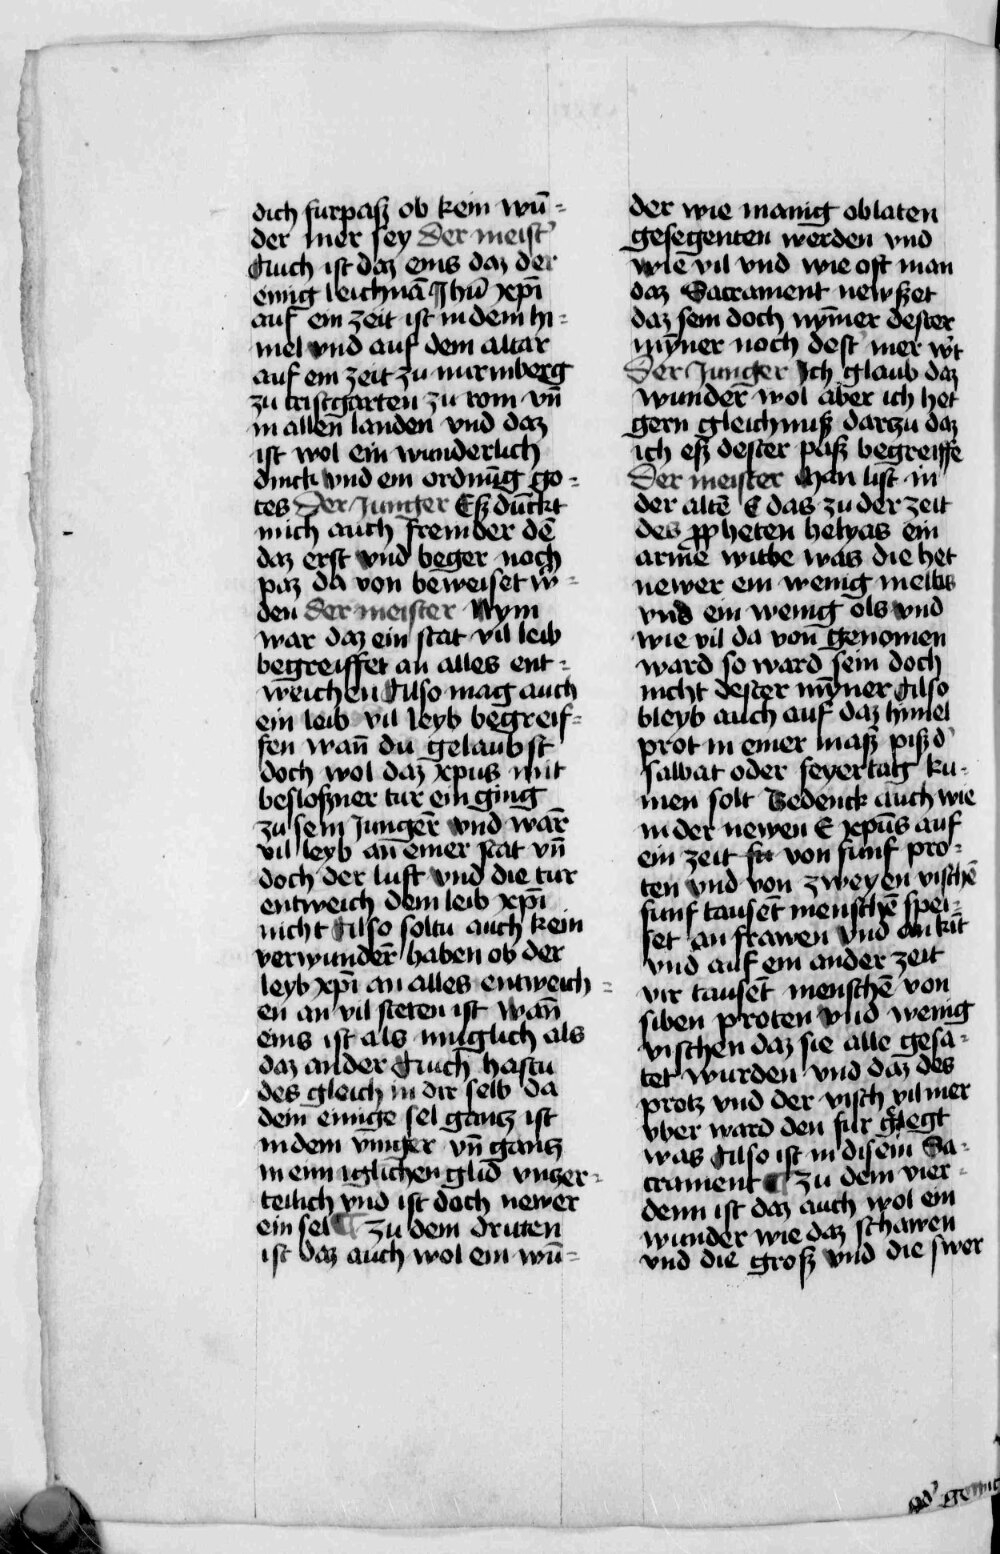 dich furpaß ob kein wū=
der mer sey Der meist'
Auch ist daz eins daz der
einig leichnā Jhū xp̄i
auf ein zeit ist in dem hi=
mel vnd auf dem altar
auf ein zeit zu nurmberg
zu tristgarten zu rom vn̄
in allen landen vnd daz
ist wol ein wunderlich
dinck vnd ein ordnūg go=
tes Der Junger Eß dūckt
mich auch fremder dē
daz erst vnd beger noch
paz da von beweiset w'=
den Der meister Nym
war daz ein stat vil leib
begreiffet an alles ent=
weichen Also mag auch
ein leib vil leyb begreif=
fen wan̄ du gelaubst
doch wol daz xpus mit
beslossner tur ein ging
zu sein Junger̄ vnd war̄
vil leyb an einer stat vn̄
doch der luft vnd die tur
entweich dem leib xp̄i
nicht Also soltu auch kein
verwunder̄ haben ob der
leyb xp̄i an alles entweich=
en an vil steten ist wan̄
eins ist als muglich als
daz ander Auch hastu
des gleich in dir selb da
dein einige sel gantz ist
in dem vinger vn̄ gantz
in einn iglichen glid vnzer=
teilich vnd ist doch newer
ein sel ¶ zu dem driten
ist daz auch wol ein wū=
der wie manig oblaten
gesegenten werden vnd
wie vil vnd wie oft man
daz Sacrament newßet
daz sein doch nym̄er dester
myn̄er noch dest' mer w't
Der Junger Ich glaub daz
wunder̄ wol aber ich het
gern gleichnuß dartzu daz
ich eß dester paß begreiffe
Der meister Man list in
der altē E das zu der zeit
des ꝓpheten helyas ein
arme witbe was die het
newer ein wenig melbs
vnd ein wenig ols vnd
wie vil da von genomen
ward so ward sein doch
nicht dester myn̄er Also
bleyb auch auf daz himel
prot in einer maß piß d'
sabat oder feyertag ku=
men solt Gedenck auch wie
in der newen E xpūs auf
ein zeit von funf pro=
ten vnd von zweyen vischē
funf tausēt menschē spei=
set an frawen vnd an kīt
vnd auf ein ander zeit
vir tausēt menschē von
siben proten vnd wenig
vischen daz sie alle gesa=
tet wurden vnd daz des
protz vnd der visch vil mer
vber ward den fur gelegt
was Also ist in disem Sa=
crament ¶ zu dem vier=
denn ist daz auch wol ein
wunder wie daz schawen
vnd die groß vnd die swer